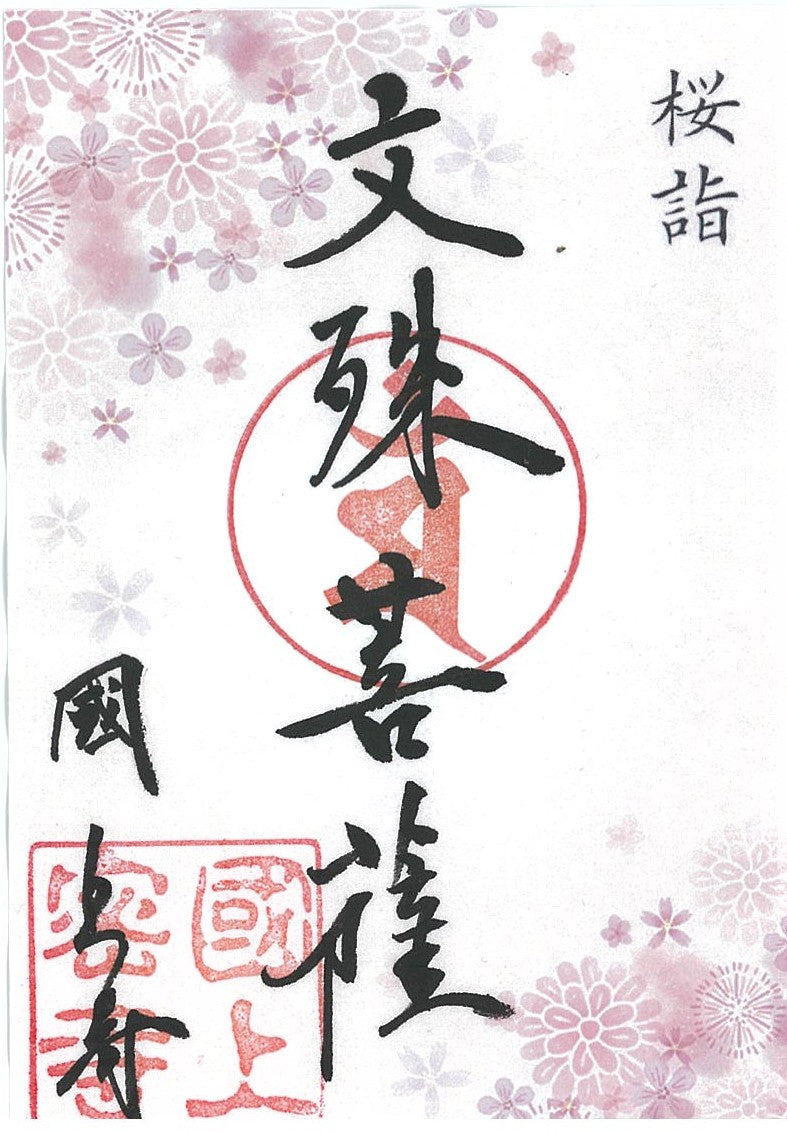 桜詣
文殊菩薩
國上寺
國上
密寺